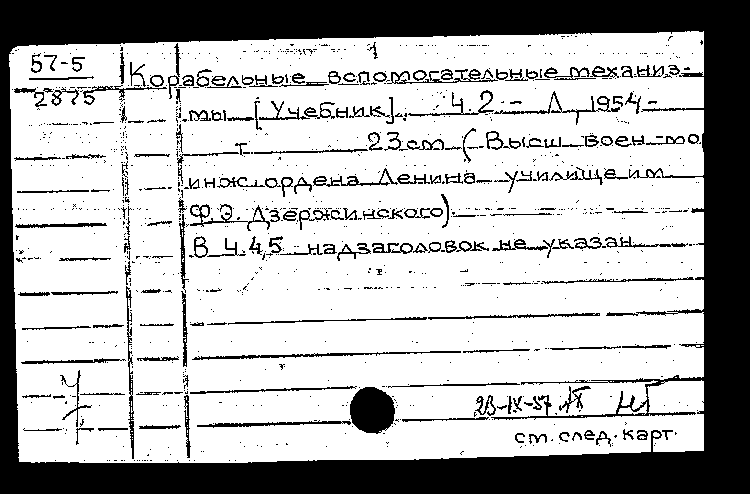 57-5
2875
Корабельные вспомогательные механиз-
мы [Учебник]. Ч.2 - Л, 1954-
т 23см (Высш воен-мо
инж.ордена Ленина училище им
Ф.Э. Дзержинского).
В Ч.4,5 надзаголовок не указан
23-IX-57
см. след. карт.